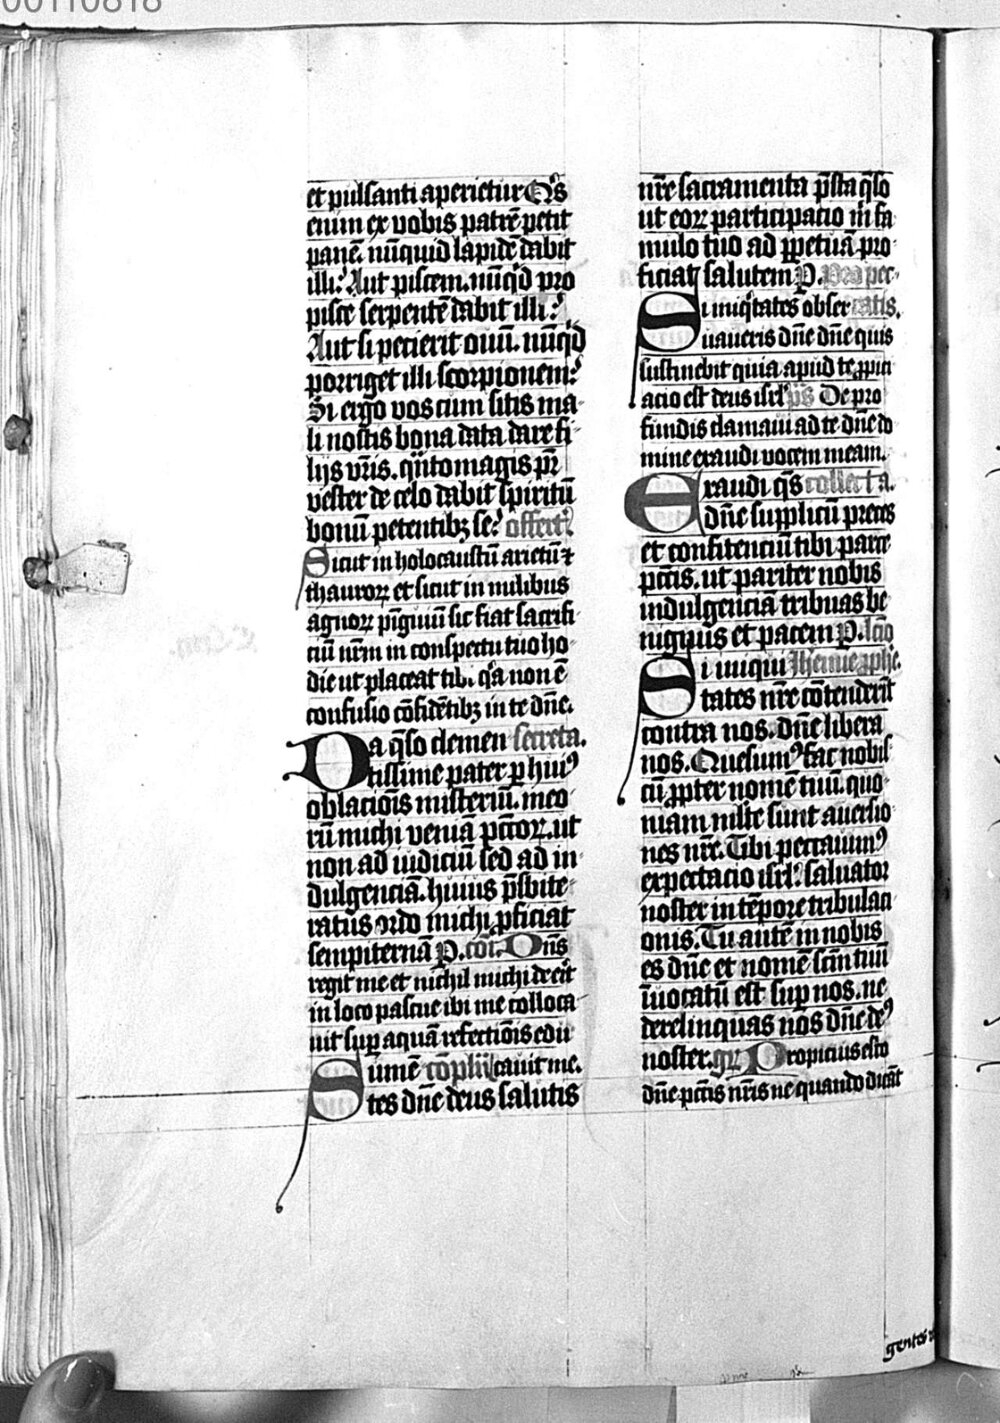 00110818
et pulsanti aperietur Q's
enim ex vobis patrē petit
panē. nūquid lapidē dabit
illi? Aut piscem. nūq'd pro
pisce serpentē dabit illi?
Aut si pecierit ouū. nūq'd
porriget illi scorpionem?
Si ergo vos cum sitis ma-
li nostis bona data dare fi-
lijs vr̄is. q̄ntomagis pr̄
vester de celo dabit spiritū
bonū petentibꝫ se? offert'
Sicut in holocaustū arietū ⁊
thauroꝝ et sicut in milibus
agnoꝝ pīguiū sic fiat sacrifi-
ciū nr̄m in conspectu tuo ho-
die ut placeat tibi. q'a non ē
confusio cōfidētibꝫ in te dn̄e.
Da q̄so clemen secreta.
tissime pater ꝑ huiꝰ
oblaciōis misteriū. meo-
rū michi veniā pctōꝝ. ut
non ad iudiciū sed ad in-
dulgenciā. huius p̄sbite-
ratus ordo michi ꝓficiat
sempiternā P. cōi. Dn̄s
regit me et nichil michi deeīt
in loco pascue ibi me colloca-
uit suꝑ aquā refectiōis edu
Sumē cōplīi cauit me.
tes dn̄e deus salutis
nr̄e sacramenta p̄sta q̄so
ut eoꝝ participatio in fa-
mulo tuo ad ꝑpetuā pro-
ficiat salutem P. Pro pec-
Si iniq'tates obser catis.
uaueris dn̄e dn̄e quis
sustinebit quia apud te ꝓpici
acio est deus isrl' ps̄ De pro
fundis clamaui ad te dn̄e do
mine exaudi vocem meam.
Exaudi q̄s collecta.
dn̄e supplicū preces
et confitenciū tibi parce
pctīs. ut pariter nobis
indulgenciā tribuas be-
nignus et pacem P. lc̄io
Si iniqui Iheremie ꝓphe.
tates nr̄e cōtenderīt
contra nos. dn̄e libera
nos. Quesumꝰ fac nobis-
cū ꝓpter nomē tuū. quo-
niam multe sunt auersio-
nes nr̄e. Tibi peccauimꝰ
expectacio isrl'. saluator
noster in tēpore tribulaci
onis. Tu autē in nobis
es dn̄e et nomē sc̄m tuū
īuocatū est suꝑ nos. ne
derelinquas nos dn̄e deꝰ
noster. gr̄ Propicius esto
dn̄e pctīs nr̄is ne quando dicāt
gentes